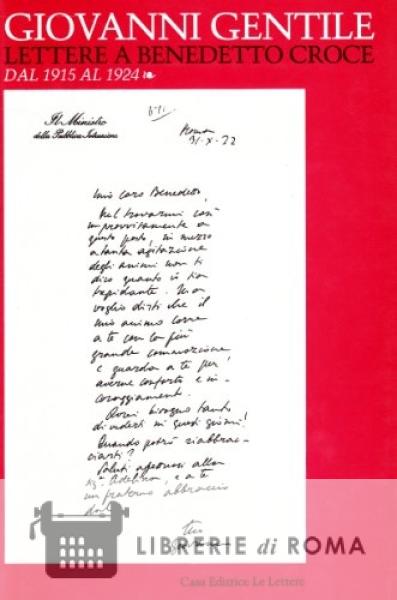 GIOVANNI GENTILE
LETTERE A BENEDETTO CROCE
DAL 1915 AL 1924
Il Ministro
della Pubblica Istruzione
Roma
31-X-22
Mio caro Benedetto,
Nel trovarmi così
improvvisamente a
questo posto, in mezzo
a tanta agitazione
degli animi non ti
dico quanto io sia
trepidante. Ma
voglio dirti che il
mio animo corre
a te con la più
grande commozione,
e guarda a te per
averne conforto e in-
coraggiamento.
Avrei bisogno tanto
di vederti in questi giorni!
Quando potrò riabbrac-
ciarti?
Saluti affettuosi alla
Sig.a Adelina, e a te
un fraterno abbraccio
dal
tuo
LIBRERIE di ROMA
Casa Editrice Le Lettere